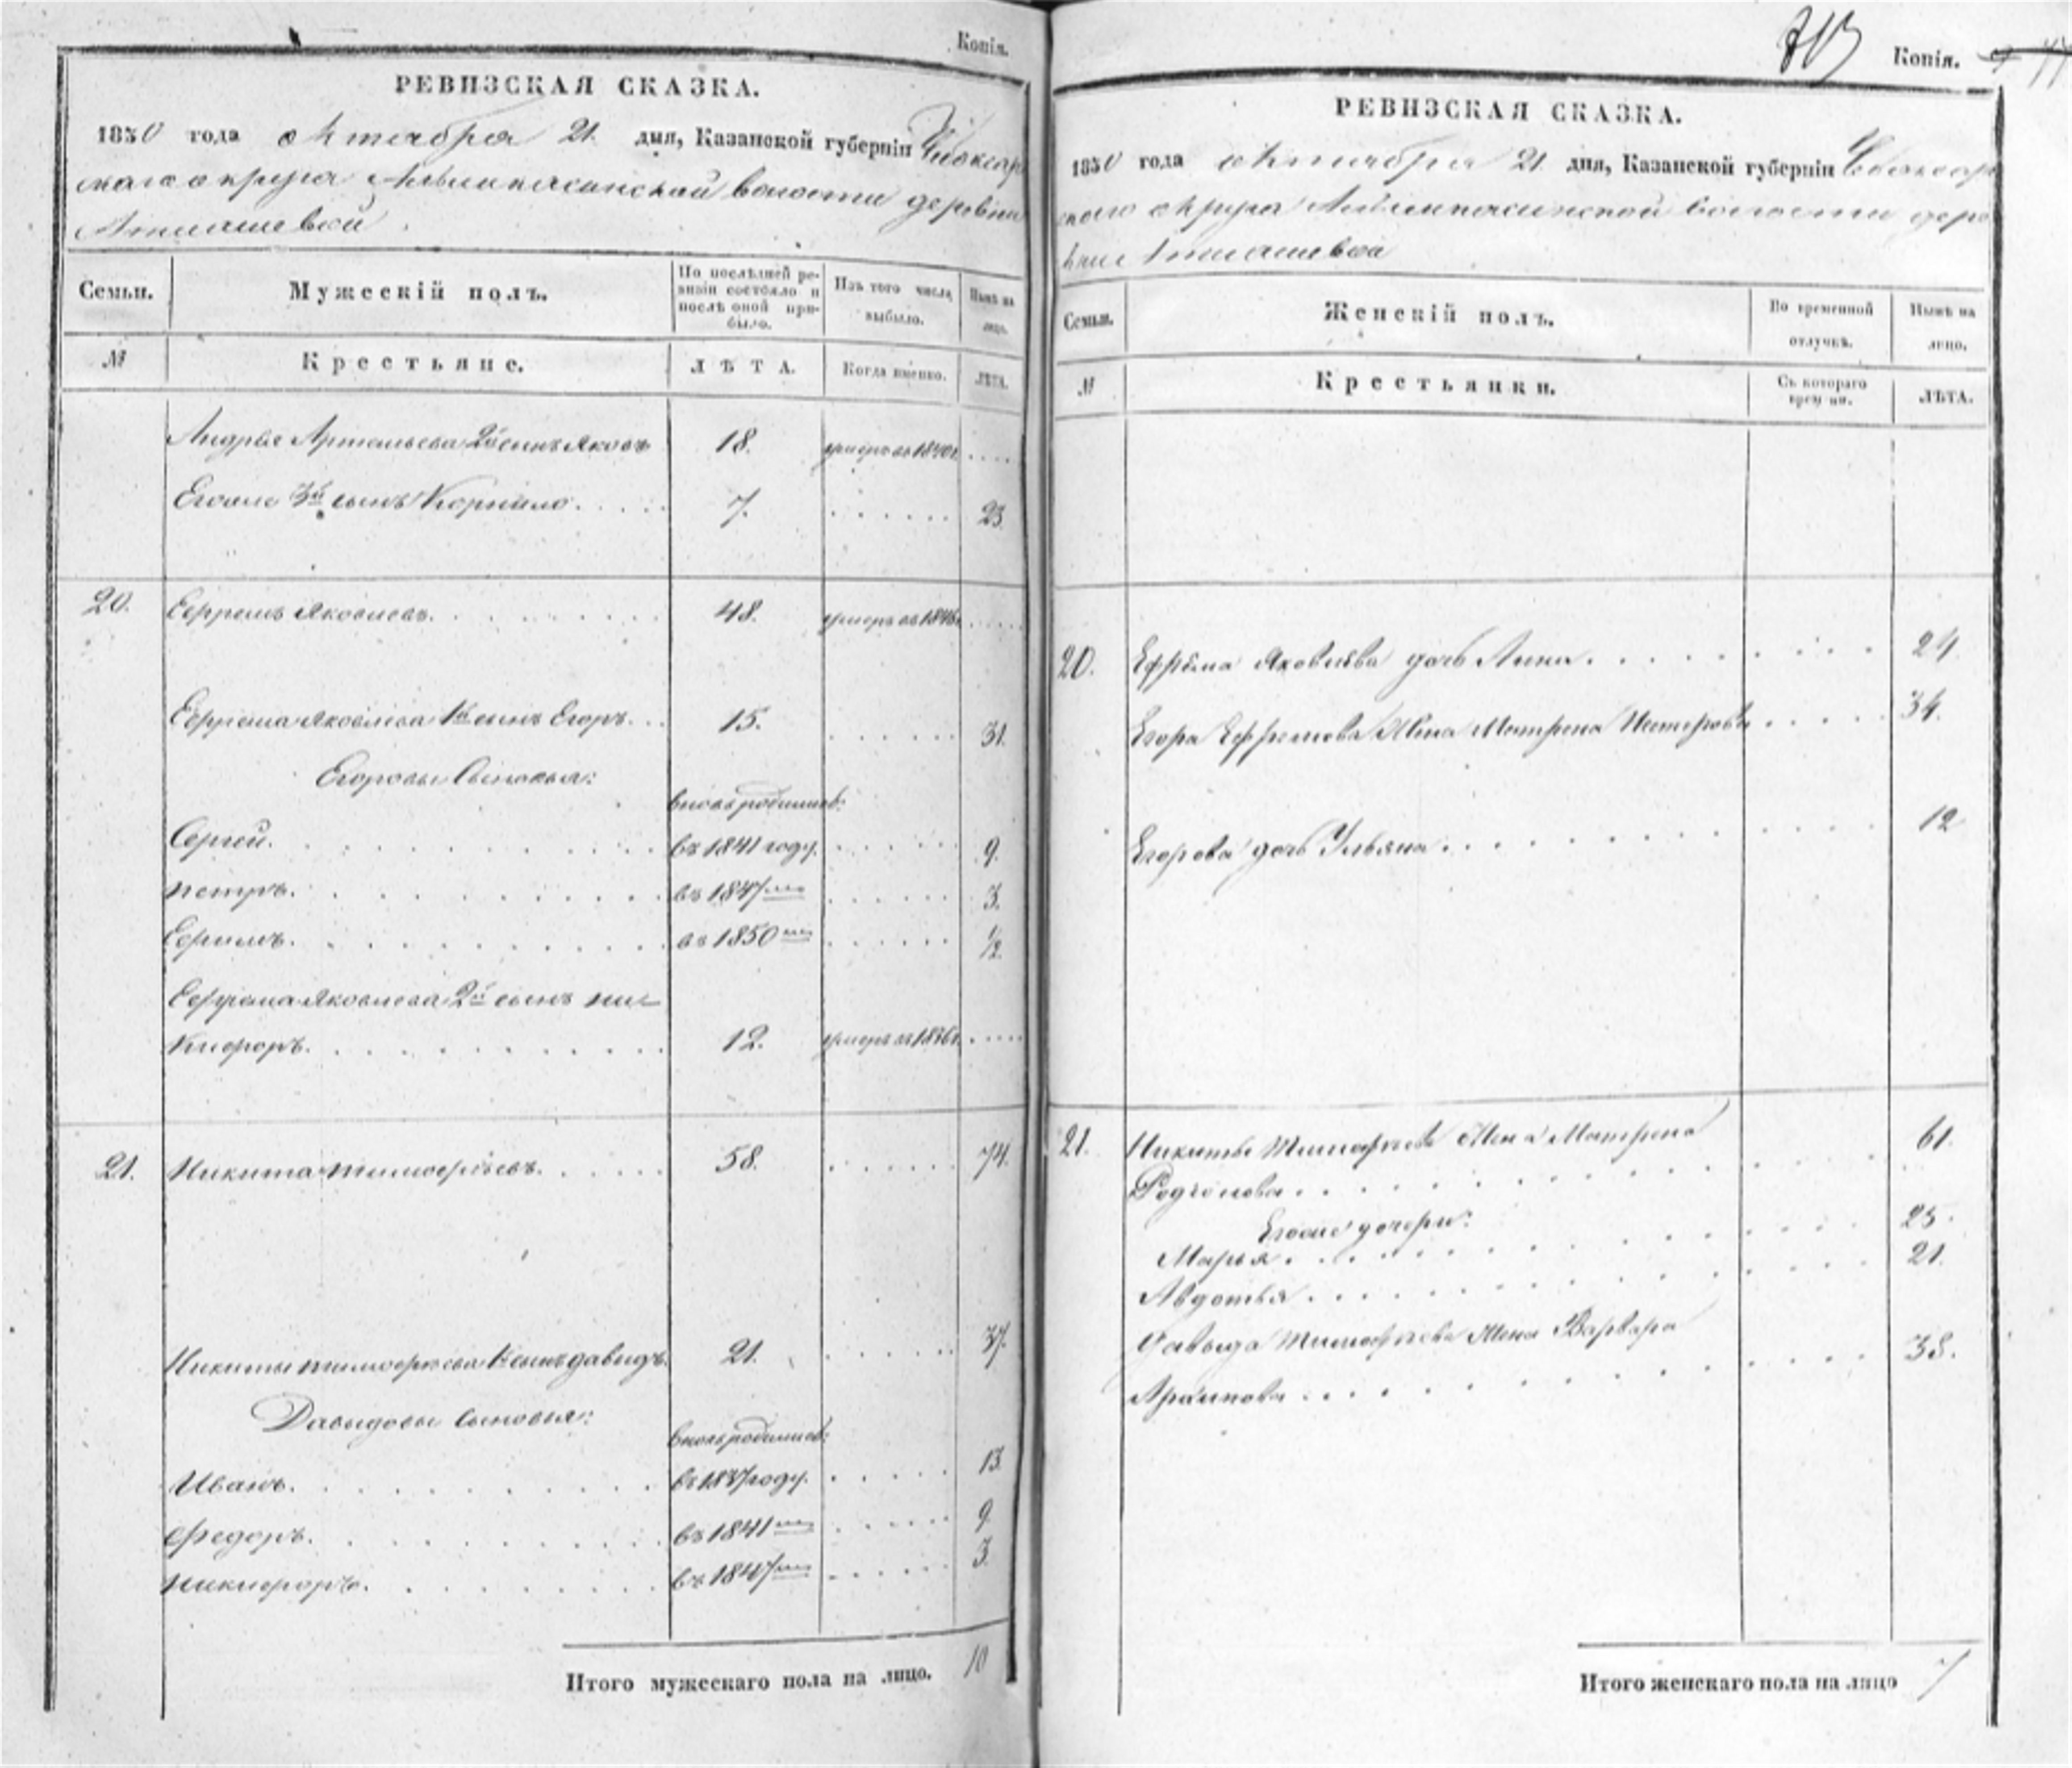 Копія.
РЕВИЗСКАЯ СКАЗКА.
1850 года октября 21 дня, Казанской губерніи Чебоксар
скаго округа волости деревни
Атлашевой
Семьи. Мужескій полъ. По послѣдней ре-визіи состояло и послѣ оной при-было. Изъ того числа выбыло. Нынѣ на лицо.
№ Крестьяне. ЛѢТА. Когда именно. ЛѢТА.
Андрея Артемьева 2й сынъ Яковъ 18. умеръ въ 1840г.
Егоже 3й сынъ Корнило. 7. 23.
20. Ефремъ Яковлевъ. 48. умеръ въ 1846г.
Ефрема Яковлева 1й сынъ Егоръ. 15. 31.
Егоровы Сыновья:
вновь родились:
Сергей. въ 1841 году. 9.
Петръ. въ 1847мъ 3.
Ефимъ. въ 1850мъ 1/2.
Ефрема Яковлева 2й сынъ Ни-
кифоръ. 12. умеръ въ 1836г.
21. Никита Тимофеевъ. 58. 74.
Никиты Тимофеева 1й сынъ Давидъ. 21. 37.
Давыдовы сыновья:
вновь родились:
Иванъ. въ 1837 году. 13.
Федоръ. въ 1841мъ 9.
Никифоръ. въ 1847мъ 3.
Итого мужескаго пола на лицо. 10
713 Копія.
РЕВИЗСКАЯ СКАЗКА.
1850 года октября 21 дня, Казанской губерніи Чебоксар
скаго округа волости дере
вни Атлашевой
Семьи. Женскій полъ. Во временной отлучкѣ. Нынѣ на лицо.
№ Крестьянки. Съ котораго времени. ЛѢТА.
20. Ефрема Яковлева дочь Анна. 24.
Егора Ефремова жена Матрена Нестерова 34.
Егорова дочь Ульяна. 12
21. Никиты Тимофеева жена Матрена 61.
Родионова.
Егоже дочери:
Марья. 25.
Авдотья. 21.
Давыда Тимофеева жена Варвара
Архипова. 38.
Итого женскаго пола на лицо 7